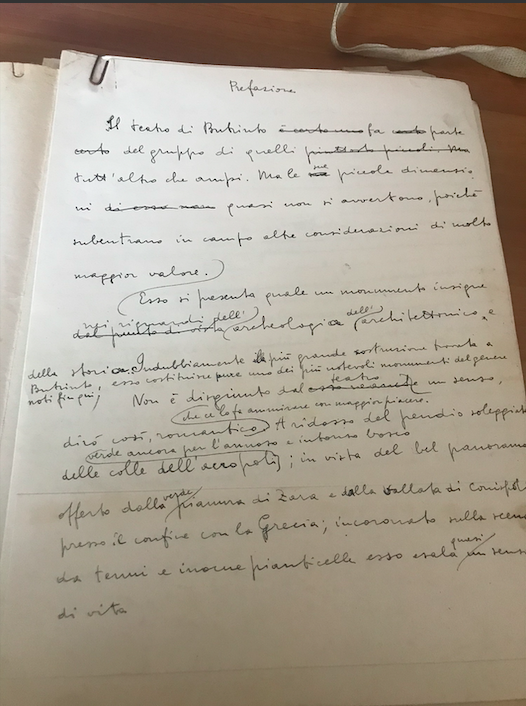 Prefazione
Il teatro di Butrinto è certo uno fa certo parte
certo del gruppo di quelli piuttosto piccoli, ma
tutt'altro che ampi. Ma le sue piccole dimensio
ni di esso non quasi non si avvertono, poichè
subentrano in campo altre considerazioni di molto
maggior valore.
Esso si presenta quale un monumento insigne
nei riguardi dell'
dal punto di vista archeologia dell'architettonico, e
della storia. Indubbiamente la più grande costruzione trovata a
Butrinto, esso costituisce pure uno dei più notevoli monumenti del genere
noti fin qui;
Non è disgiunto dal teatro un senso,
che ce lo fa ammirare con maggior piacere.
dirò così, romantico. A ridosso del pendio soleggiato
verde ancora per l'annoso e intonso bosco
delle colle dell'acropoli; in vista del bel panorama
offerto dalla verde pianura di Zara e dalla vallata di Conispoli
presso il confine con la Grecia; incoronato sulla scena
da tenui e inocue pianticelle esso esala quasi un senso
di vita